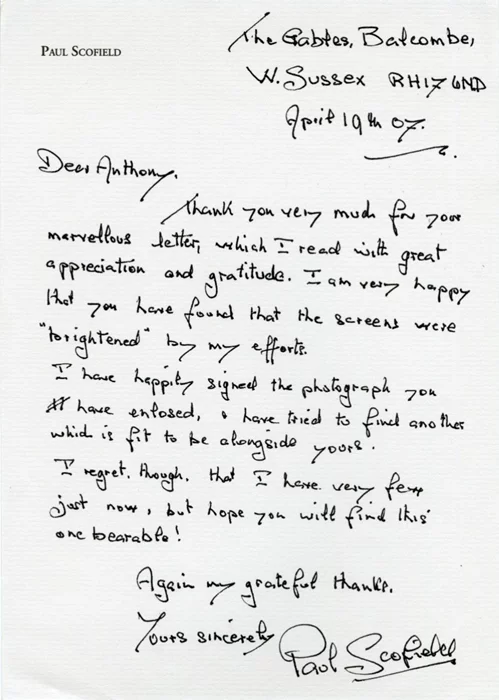 The Gables, Balcombe,
PAUL SCOFIELD
W. Sussex RH17 6ND
April 19th 07.
Dear Anthony,
Thank you very much for your
marvellous letter, which I read with great
appreciation and gratitude. I am very happy
that you have found that the screens were
"brightened" by my efforts.
I have happily signed the photograph you
have enlosed, & have tried to find another
which is fit to be alongside yours.
I regret, though, that I have very few
just now, but hope you will find this
one bearable!
Again my grateful thanks.
Yours sincerely
Paul Scofield